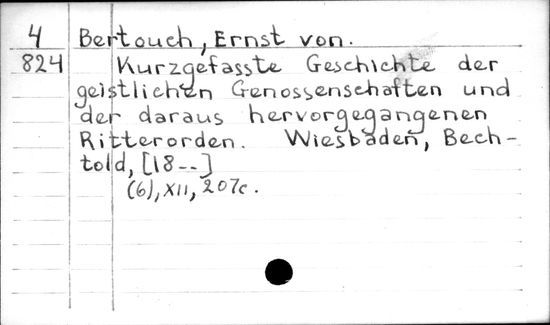 4 Bertouch, Ernst von.
824 Kurzgefasste Geschichte der
geistlichen Genossenschaften und
der daraus hervorgegangenen
Ritterorden. Wiesbaden, Bech-
told, [18--]
(6), XII, 207c.